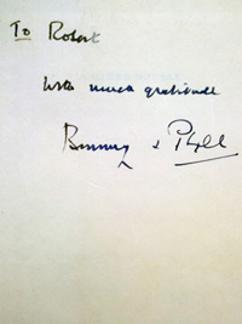 To Robert
With much gratitude
Bunny & Phyll